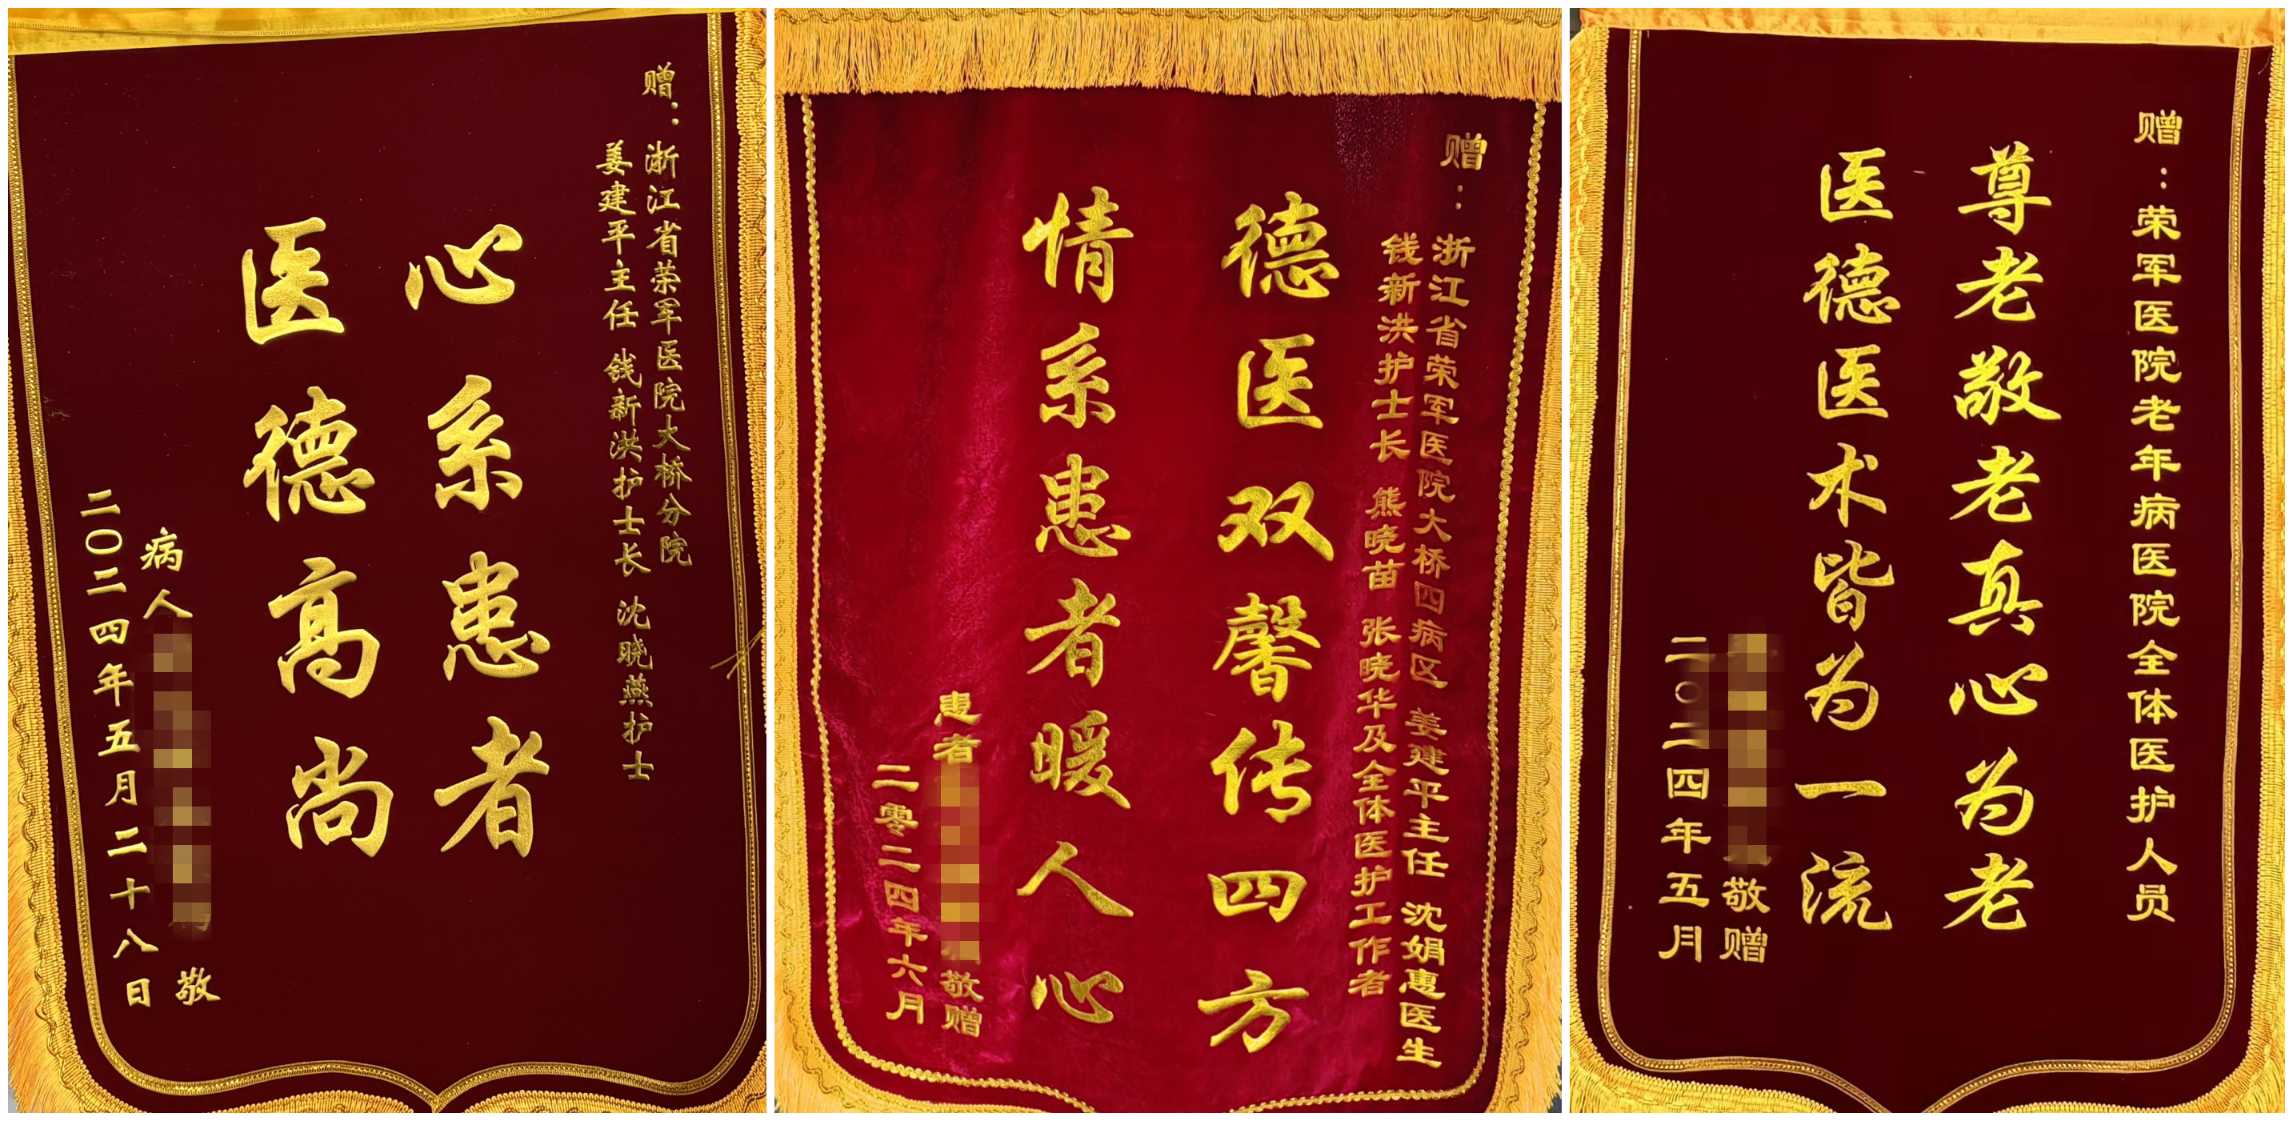 赠：浙江省荣军医院大桥分院
姜建平主任 钱新洪护士长 沈晓燕护士
心系患者
医德高尚
病人
敬
二〇二四年五月二十八日
赠：浙江省荣军医院大桥四病区 姜建平主任 沈娟惠医生
钱新洪护士长 熊晓苗 张晓华及全体医护工作者
德医双馨传四方
情系患者暖人心
患者
敬赠
二零二四年六月
赠：荣军医院老年病医院全体医护人员
尊老敬老真心为老
医德医术皆为一流
敬赠
二〇二四年五月